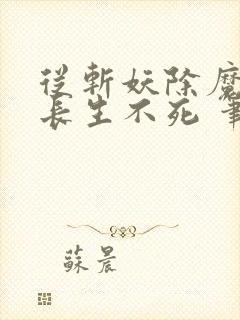 從斬妖除魔
長生不死 筆
蘇晨